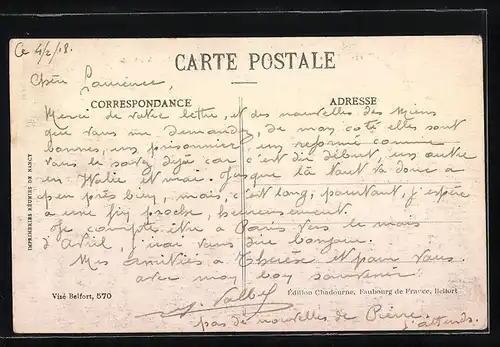 Ce 4/2/18.
CARTE POSTALE
Chère Laurence,
CORRESPONDANCE
ADRESSE
Merci de votre lettre, et des nouvelles des miens
que vous me demandez, de mon coté elles sont
bonnes, un prisonnier, un reformé comme
vous le savez déjà car c'est du début, un autre
en Italie et moi. Jusque là tout va donc a
peu près bien, mais, c'est long, pourtant, j'espère
a une fin proche, heureusement.
Je compte être a Paris vers le mois
d'Avril, j'irai vous dire bonjour.
Mes amitiés à Thérèse et pour vous
avec mon bon souvenir
IMPRIMERIES RÉUNIES DE NANCY
Visé Belfort, 570
Édition Chadourne, Faubourg de France, Belfort
pas de nouvelles de Pierre.
j'attends.